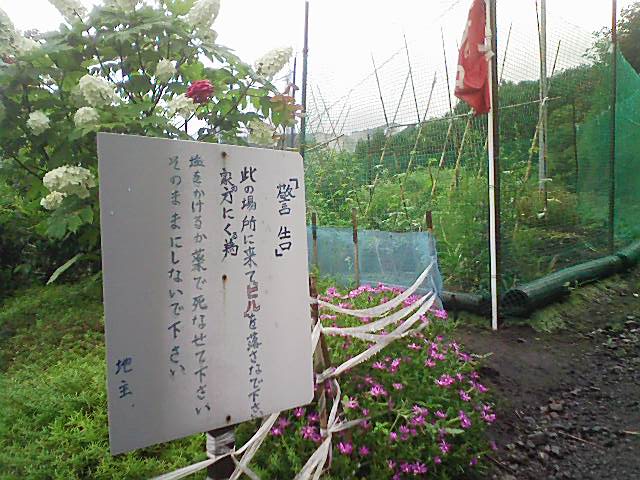 「警告」
此の場所に来てヒルを落さないで下さい
そのままにしないで下さい
塩をかけるか薬で死なせて下さい
地主